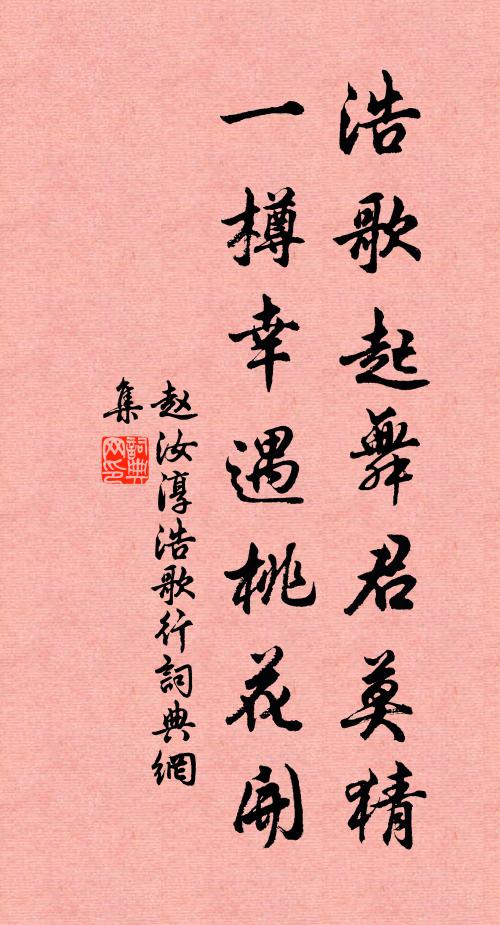 浩歌起舞君莫猜
一樽幸遇桃花開
赵汝淳浩歌行詞典網
集
詞典網印